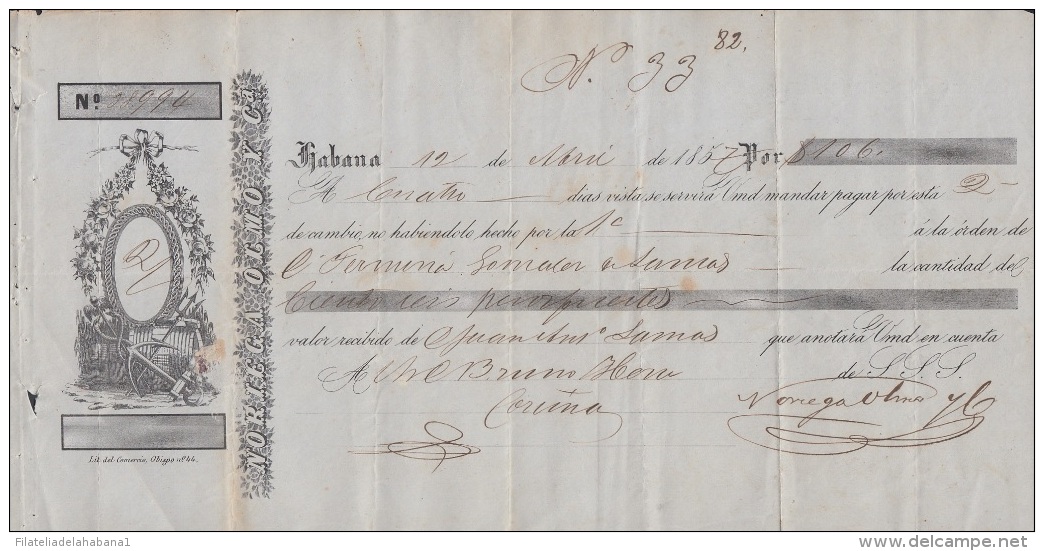 82.
N. 33
Nº 994
NORIEGA OLMO Y Cª
Habana 12 de Abril de 1857 Por $106.
A Cuatro dias vista se servirá Vmd mandar pagar por esta 2
de cambio, no habiéndolo hecho por la 1ª á la órden de
Dº Fermina Gonzalez de Lamas la cantidad de
Ciento seis pesos fuertes
valor recibido de Juan Antº Lamas que anotará Vmd en cuenta
de S. S. S.
A Bruno Herce
Coruña
Noriega Olmo y C
2
Lit. del Comercio, Obispo nº 44.
Filateliadelahabana1
www.delcampe.net